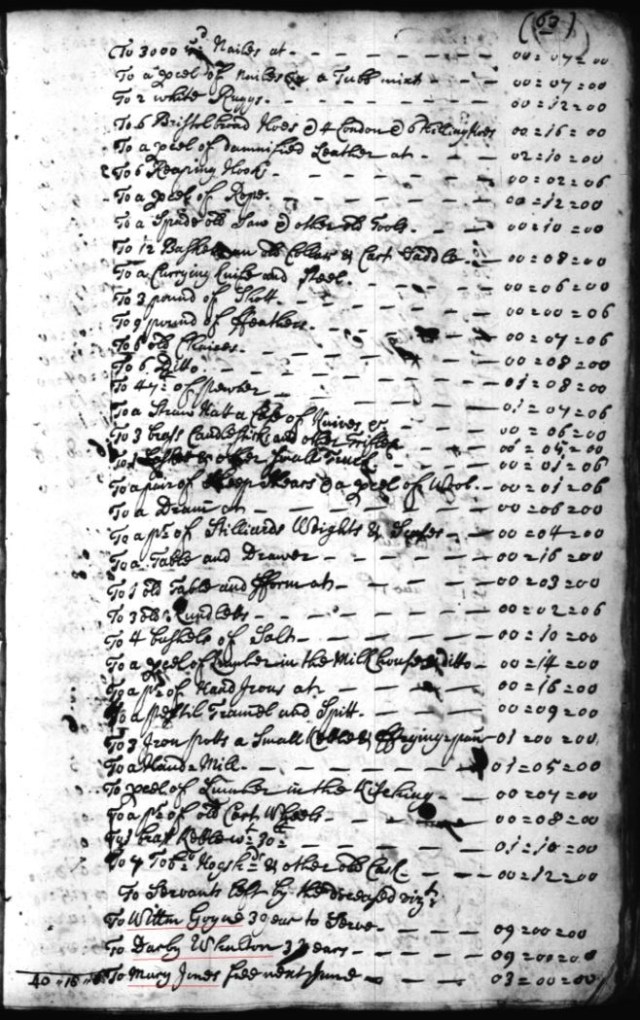 (63)
To 3000 d Nailes at - 00=07=00
To a pcel of Nailes a Tubb mixt - 00=07=00
To 2 white Ruggs - 00=12=00
To 6 Bristol broad Hoes & 4 London & 6 Hilling Hoes 00=16=00
To a pcel of damnified Leather at - 02=10=00
To 6 Reaping Hooks - 00=02=06
To a pcel of Rope - 00=12=00
To a Spade old Saw & other old Tools - 00=10=00
To 12 Baskets an old Collar & Cart Saddle - 00=08=00
To a Currying Knife and Steel - 00=06=00
To 3 pound of Shott - 00=00=06
To 9 pound of ffeathers - 00=07=06
To 6 old Chaires - 00=08=00
To 6 Ditto - 01=08=00
To 47 of Pewter - 01=07=06
To a Straw Hatt a of Knives &c - 00=06=00
To 3 brass Candlesticks and other trifles 00=05=00
To & other small Truck 00=01=06
To a pair of Sheep Shears & a pcel of Wool - 00=01=06
To a Dram at - 00=06=00
To a pr of Stilliards Weights & Scales - 00=04=00
To a Table and Drawer - 00=16=00
To 1 old Table and fform at - 00=03=00
To 3 old Rundletts - 00=02=06
To 4 bushels of Salt - 00=10=00
To a pcel of Lumber in the Milk house & ditto - 00=14=00
To a pr of Hand Irons at - 00=16=00
To a pestil Tramel and Spitt - 00=09=00
To 3 Iron potts a Small Kettle & ffrying=pan 01=00=00
To a Hand=Mill - 01=05=00
To pcel of Lumber in the Kitching - 00=07=00
To a pr of old Cart Wheels - 00=08=00
To 1 bras Kettle wt 30 - 01=10=00
To 7 Tobo Hogshds & other old Cask - 00=12=00
To Servants left by the deceased vizt
To Willm Goyne 3 year to Serve - 09=00=00
To Darby Whulton 3 years - 09=00=00
40=16=6 To Mary Jones free next June - 03=00=00